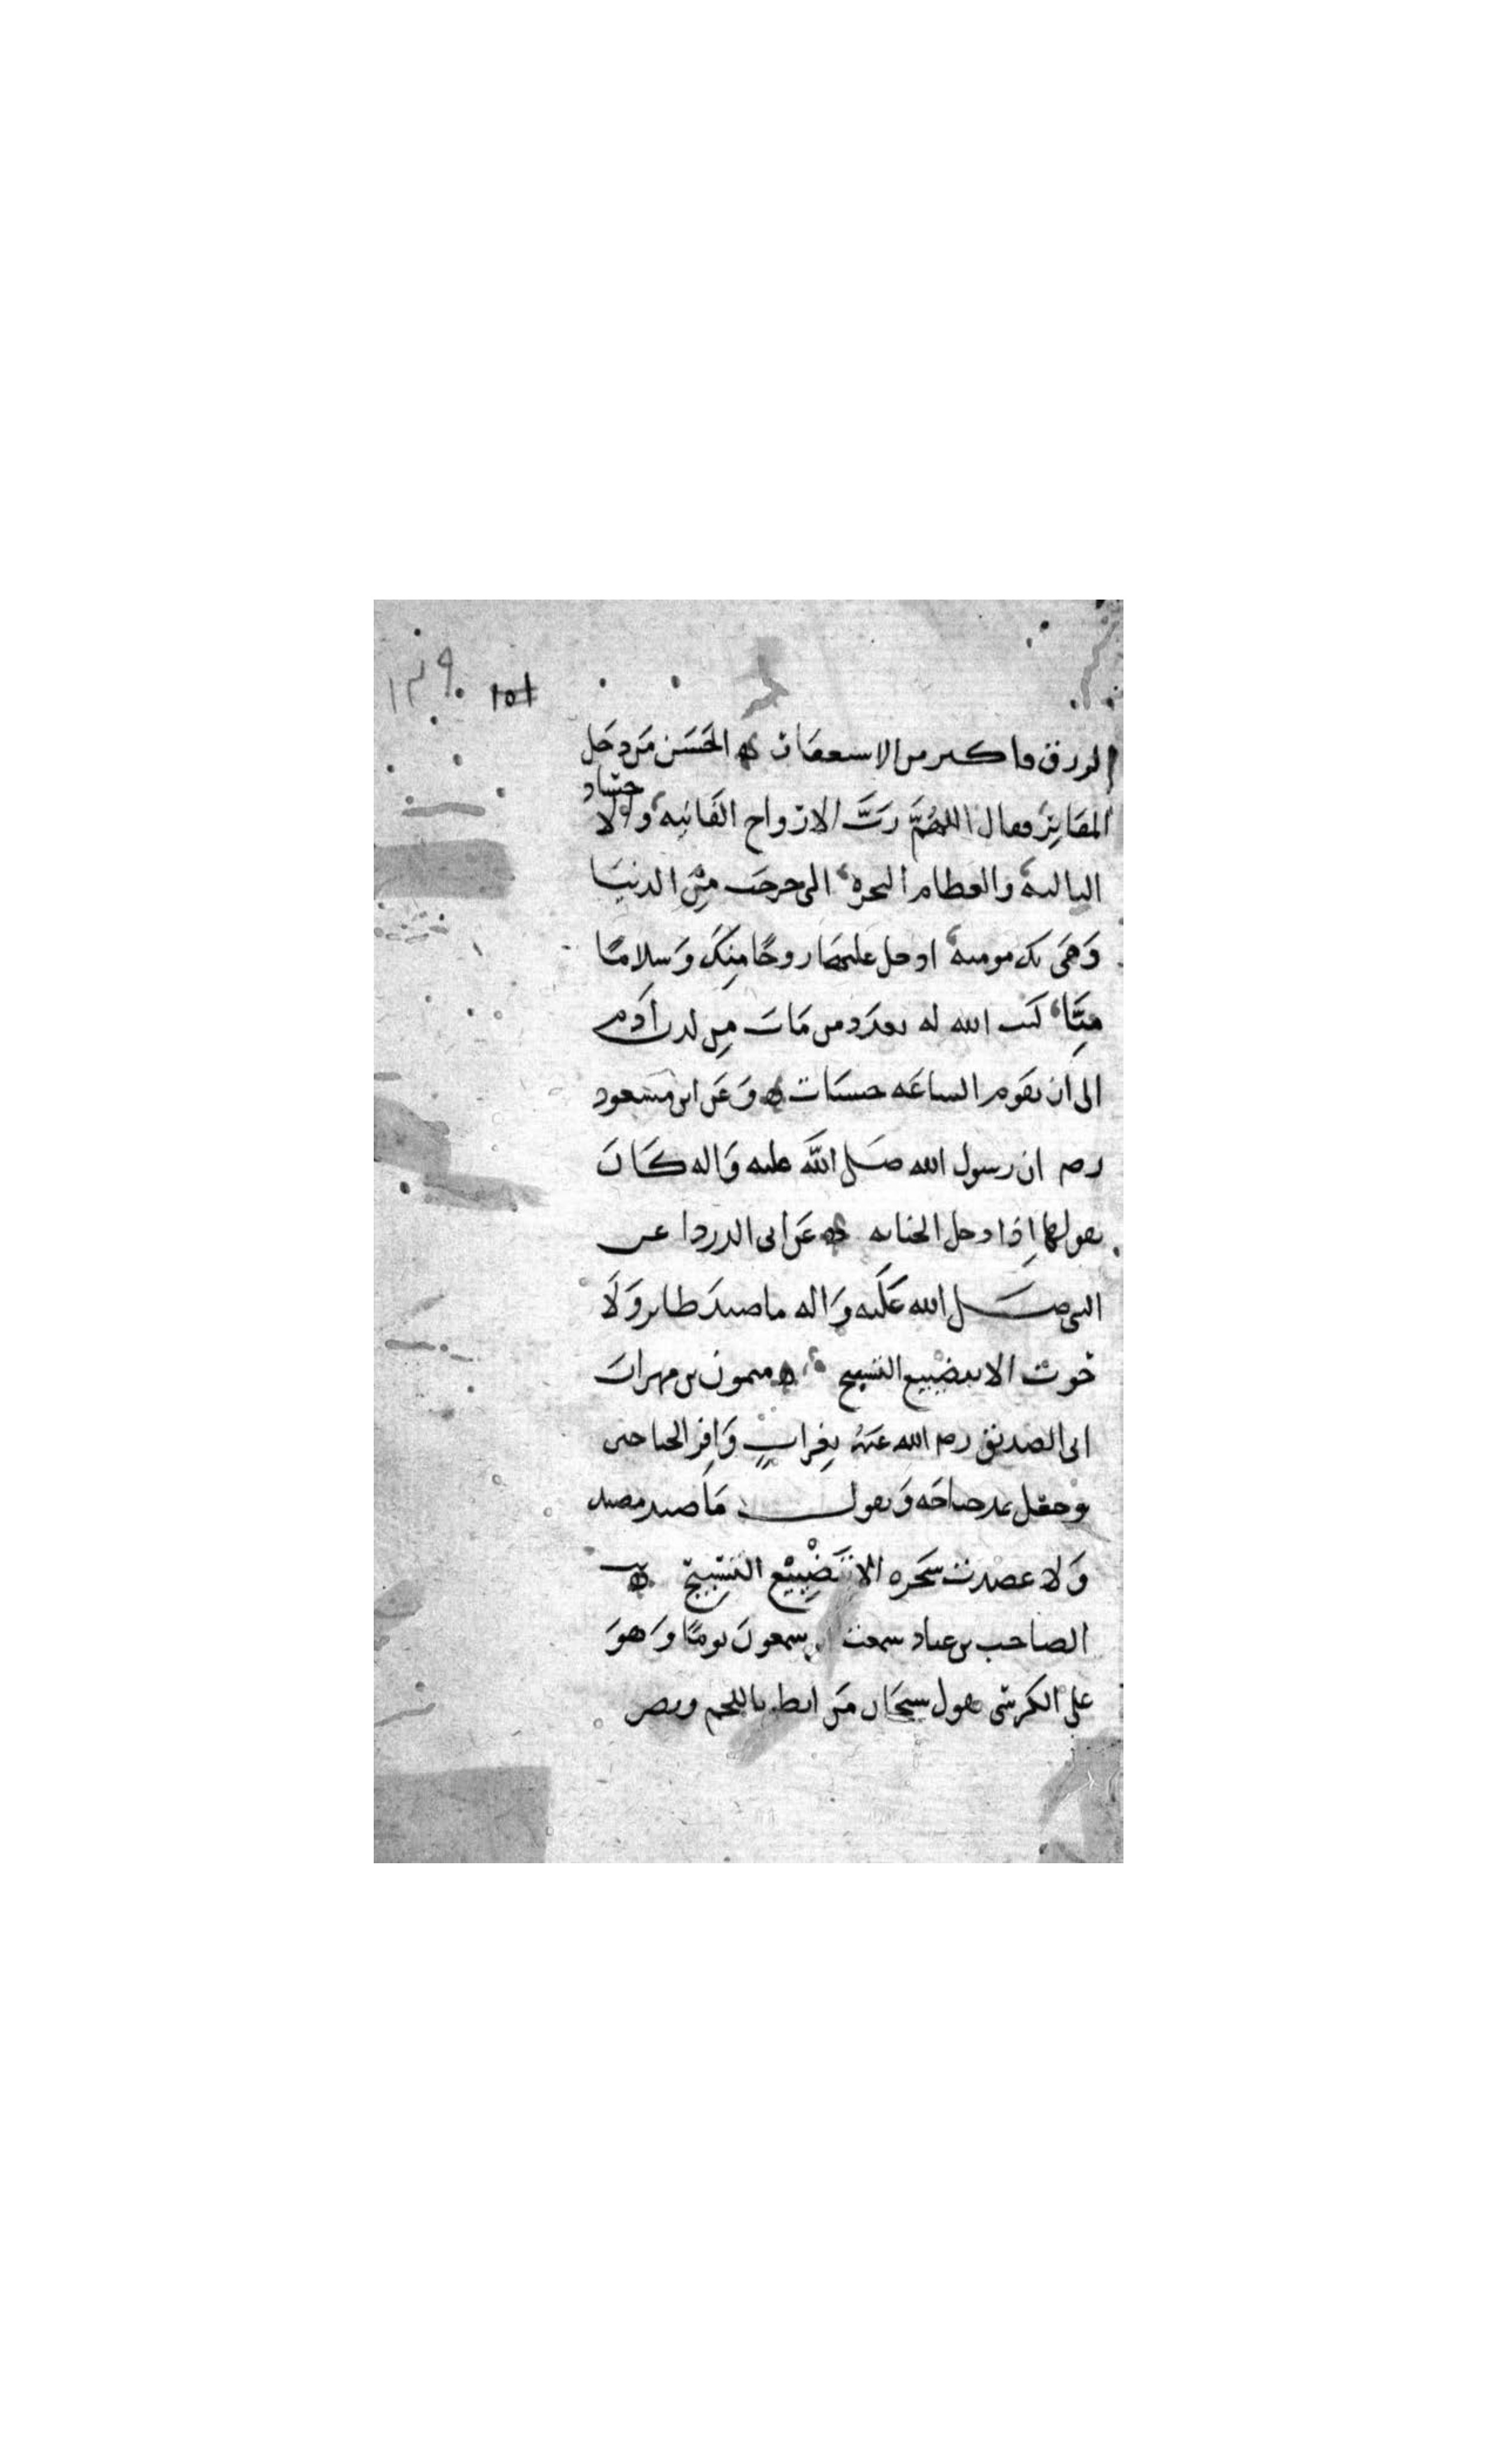 ١٣٩ ١٥١
الرزق فاكثر من الاستغفار ه الحَسَن مَن دخَل
المقابر فقال اللهُمَّ ربَّ الارواح الفانيه والاجساد
الباليه والعظام النخره التى خرجت مِن الدنيَا
وَهَى بك مومنه ادخل عليهَا روحًا منِكَ وَسلامًا
منِّا كتب الله له بعدَد من مَات مِن لدن آدم
الى ان تقوم الساعَه حسنات ه وَعَن ابن مسعود
رضه ان رسول الله صَلى اللَّه عليه وَاله كَانَ
يقولها اِذا دخل الجبانه ه عَن ابى الدردا عن
النبى صَلى الله عَلَيه وَاله ما صيدَ طاير وَلَا
حُوت الا بتضييع التسبيح ه ميمون بن مهران
اتى الصديق رضى الله عَنهُ بِغرابٍ وَافِر الجناحين
وجعَل يمد جناحَه وَيقول مَا صيد مصيد
وَلا عضدت شَجره الا بتَضِييع التسبيح ه
الصاحب بن عباد سمعت ابن سمعون يومًا وَهوَ
على الكرسى يقول سبحَان مَن انطق باللحم وبصر